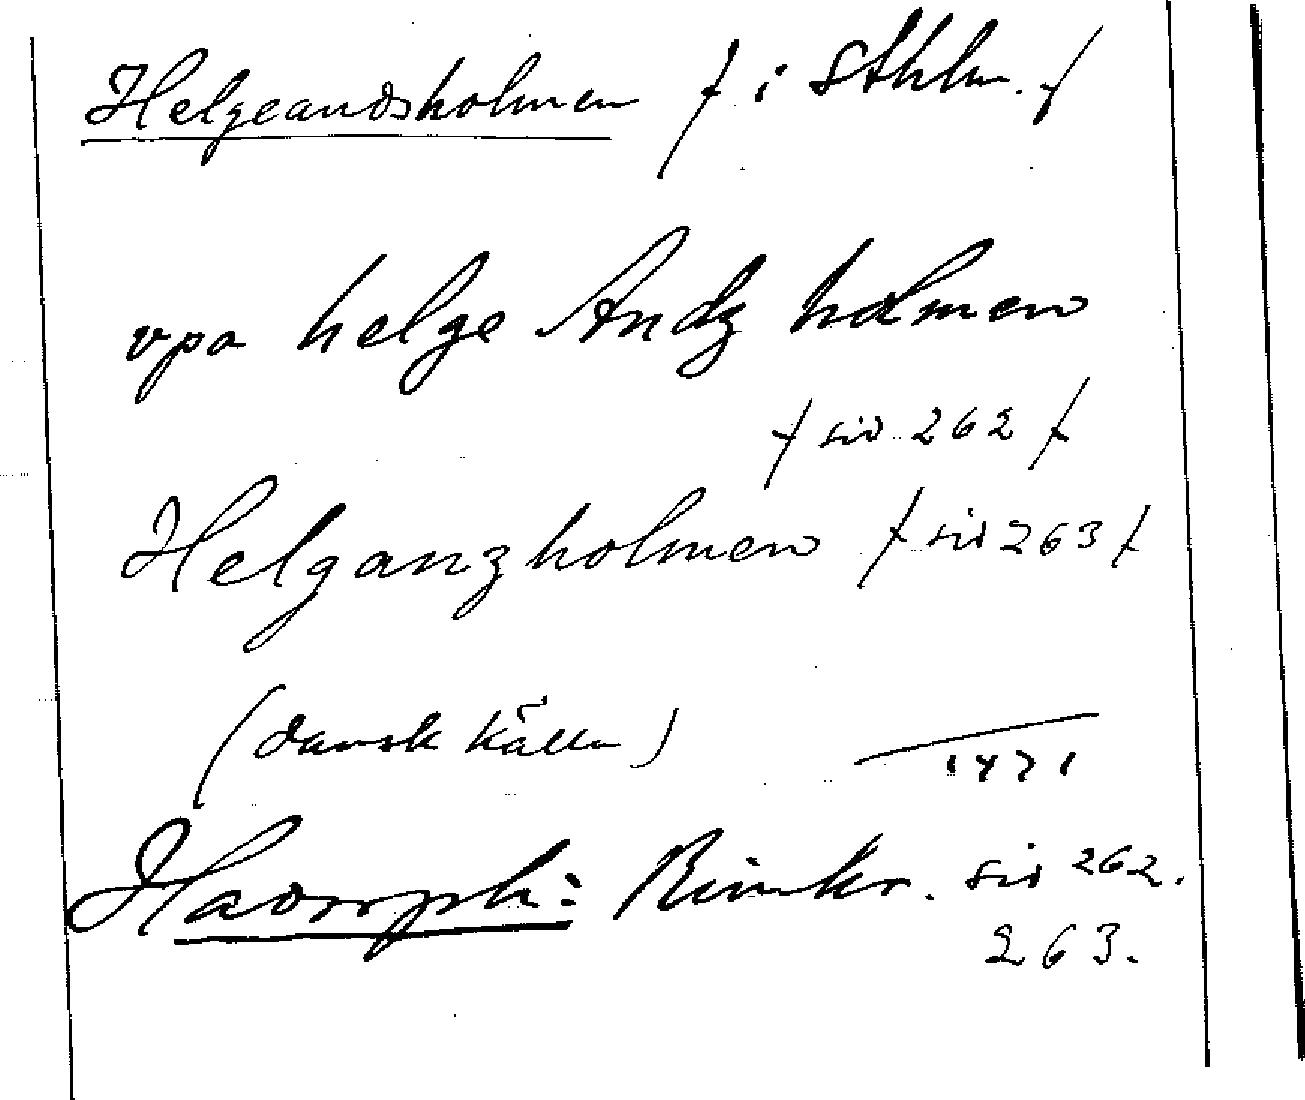 Helgeandsholmen / i Sthlm. /
vpa helge Andz holmen
/ sid 262 /
Helganzholmen / sid 263 /
(dansk källa)
1471
Hadorph: Rimkr. sid 262.
263.